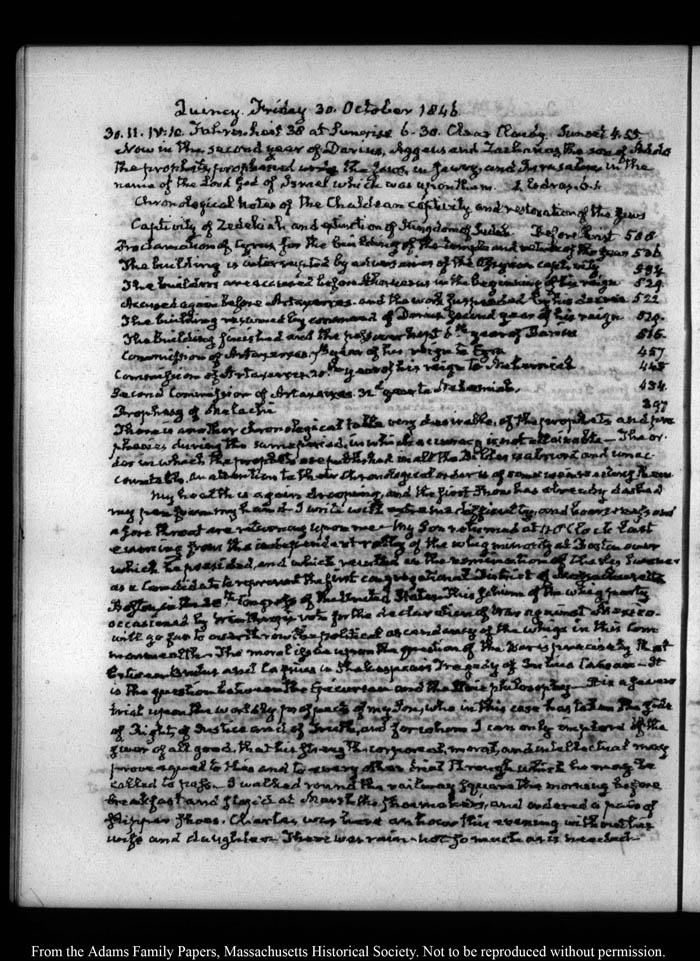 Quincy Friday 30. October 1846
30. IV:10. Fahrenheit 38 at Sunrise 6-30. Clear Cloudy. Sunset 4.55
Now in the second year of Darius, Aggeus and Zacharias the son of Addo
the prophets, prophesied unto the Jews in Jewry and Jerusalem in the
name of the Lord God of Israel which was upon them. 1. Esdras. 6.1
Chronological notes of the Chaldean captivity and restoration of the Jews
Captivity of Zedekiah and extinction of Kingdom of Judah Before Christ 588
Proclamation of Cyrus for the building of the temple and return of the Jews 536
The building is interrupted by adversaries of the captivity 534
The builders are accused before Ahasuerus in the beginning of his reign 529.
Accused again before Artaxerxes. and the work suspended by his decree 522
The building resumed by command of Darius second year of his reign 520.
The building finished and the passover kept 6th year of Darius 515.
Commission of Artaxerxes. 7th year of his reign to Ezra 457
Commission of Artaxerxes 20th year of his reign to Nehemiah 445
Second Commission of Artaxerxes. 32d year to Nehemiah. 434.
Prophesy of Malachi 397
There is another chronological table very desirable, of the prophets and pro
phecies during the same period, in which accuracy is not attainable - The or
der in which the prophets are published in all the Bibles is absurd and unac
countable, an attention to their chronological order is of some use in reading them
My health is again drooping, and the first has already dashed
my pen from my hand - I write with extreme difficulty, and hoarseness and
a sore throat are returning upon me - My Son returned at 11 O'Clock last
evening from the independent rally of the whig minority at Boston over
which he presided, and which resulted in the nomination of Charles Sumner
as a Candidate to represent the first congregational District of Massachusetts
Boston in the 30th Congress of the United States. This schism of the whig party
occasioned by Winthrop's vote for the declaration of War against Mexico
will go far to overthrow the political ascendancy of the whigs in this Com
monwealth. The moral issue upon the question of the War is precisely that
between Brutus and Cassius in Shakespear's Tragedy of Julius Caesar - It
is the question between the Epicurean and the Stoic philosophy - It is a severe
trial upon the worldly prospects of my Son, who in this case has taken the side
of Right, of Justice and of Truth, and for whom I can only implore of the
giver of all good, that his strength corporeal, moral, and intellectual may
prove equal to this and to every other trial through which he may be
called to pass. I walked round the railway Square this morning before
breakfast and stop'd at Marsh the shoemakers, and ordered a pair of
slipper shoes. Charles was here an hour this evening with his
wife and daughter - There was rain - not so much as is needed.
From the Adams Family Papers, Massachusetts Historical Society. Not to be reproduced without permission.